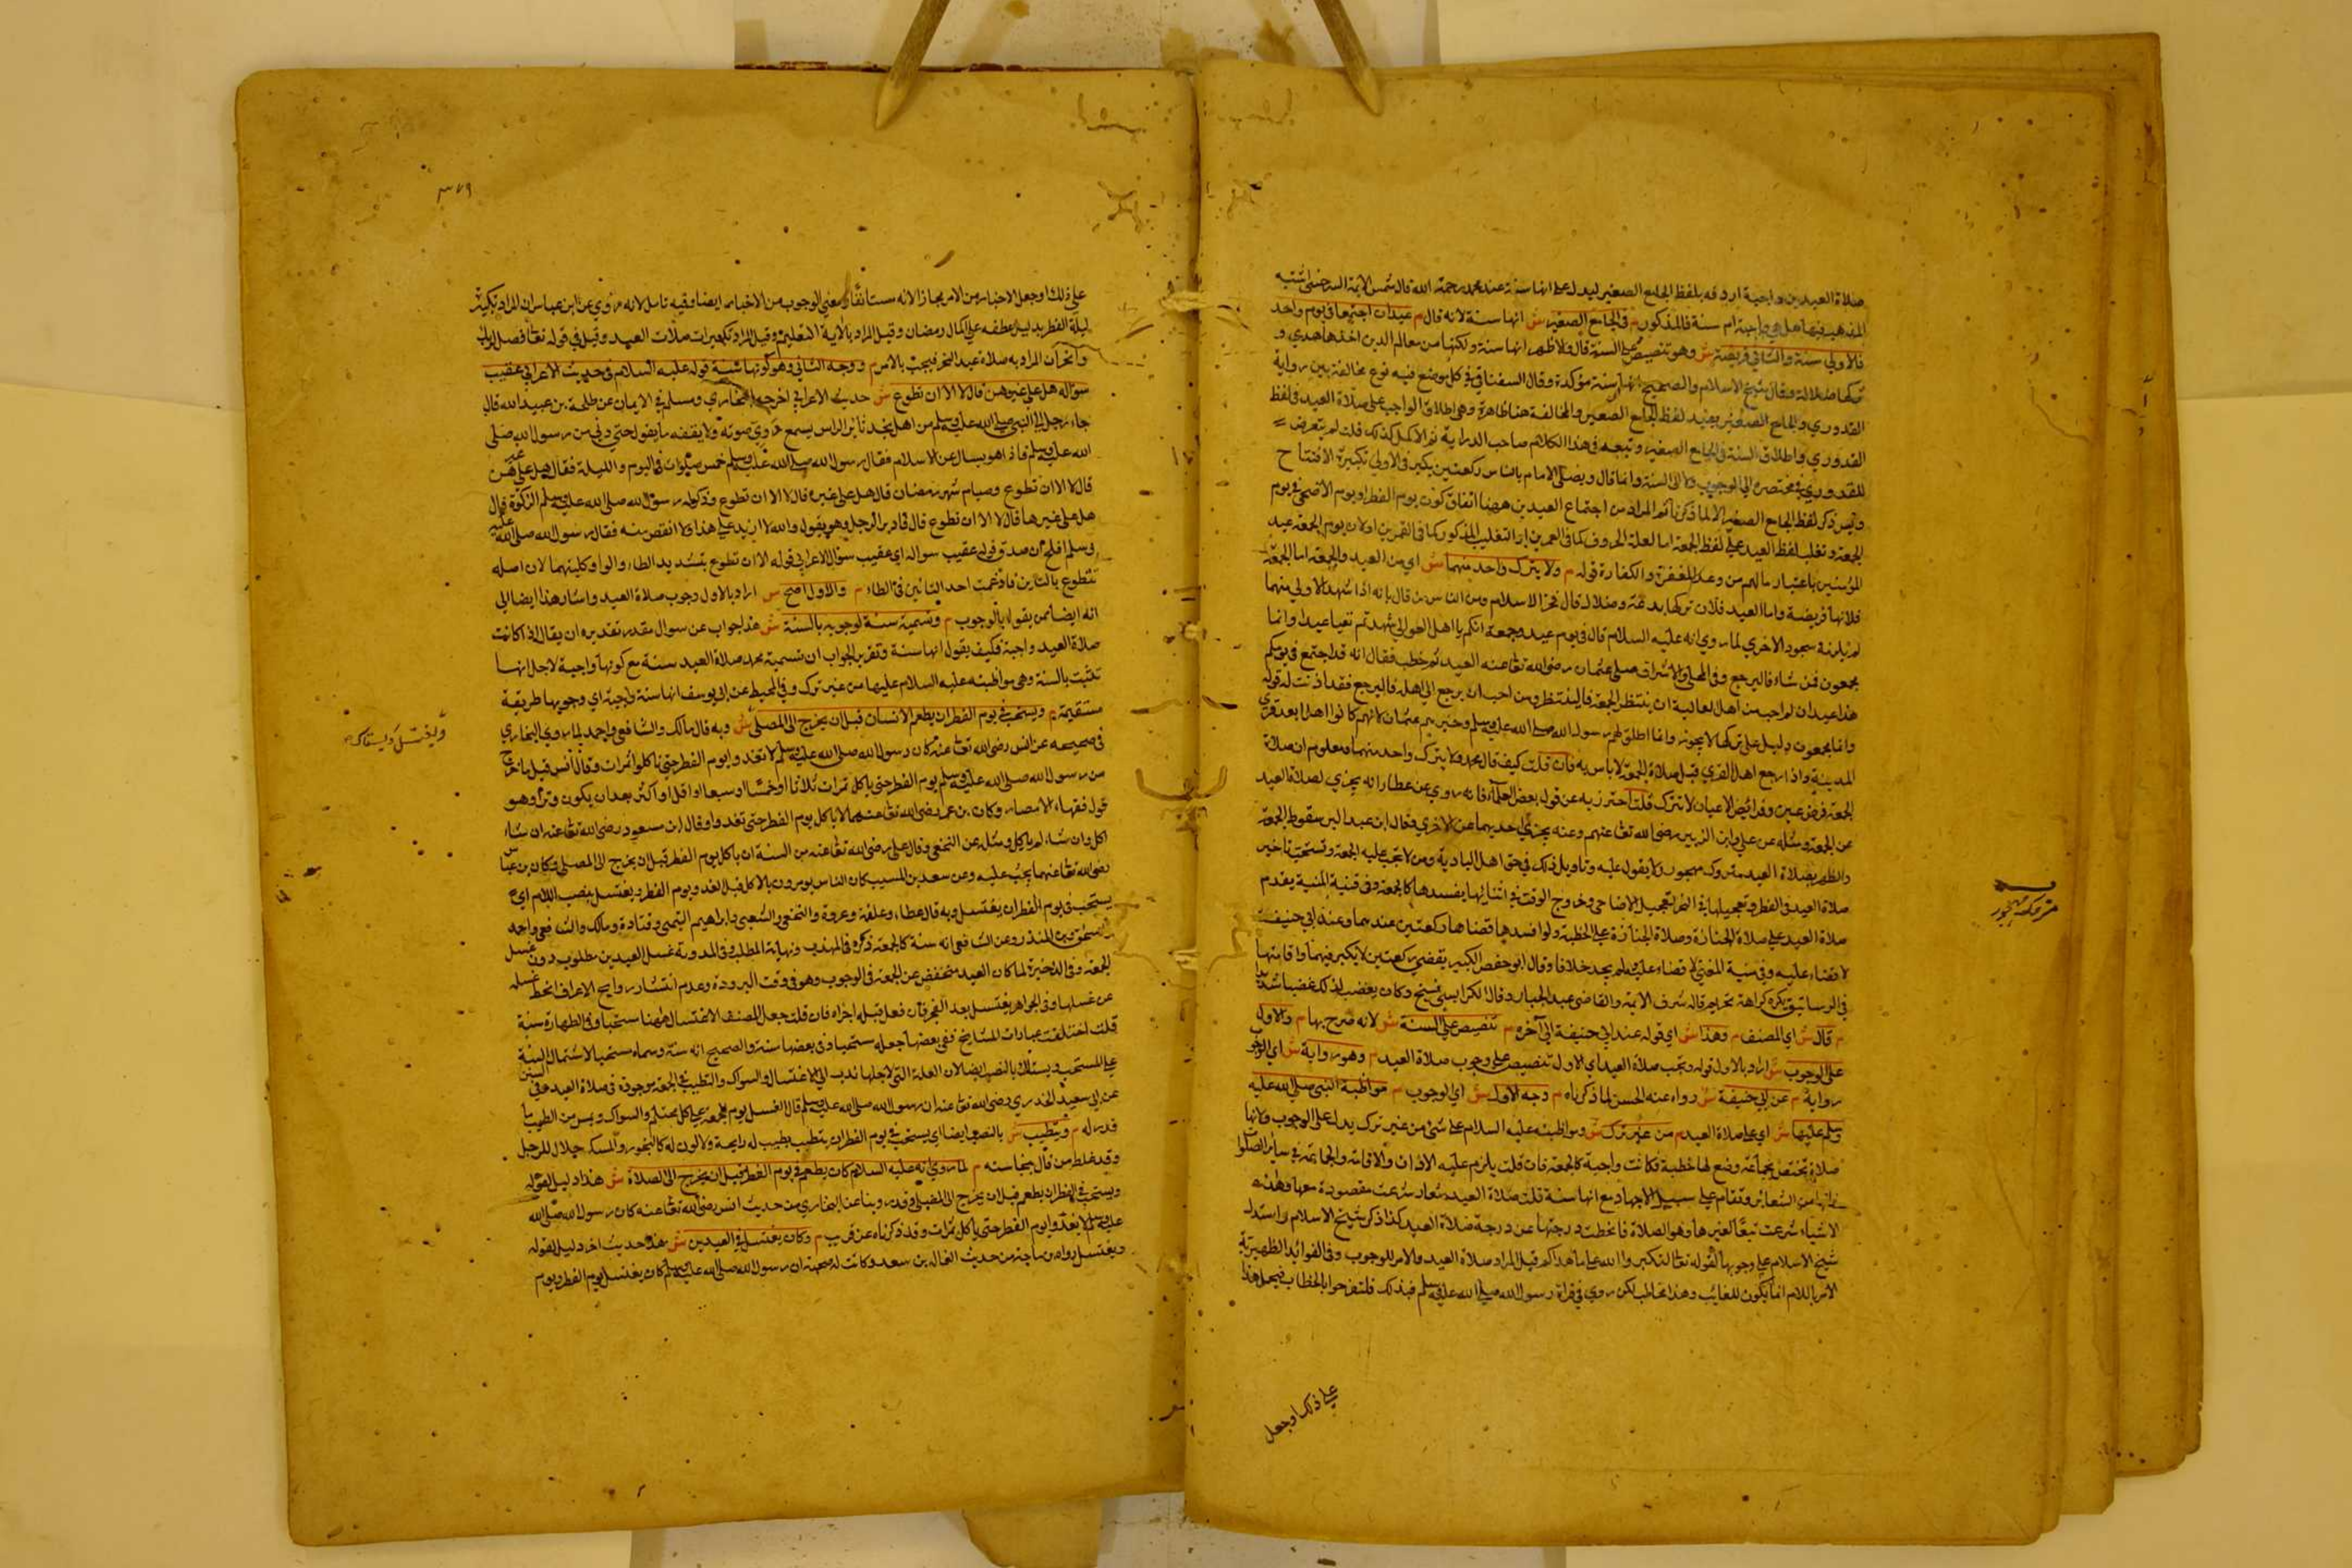 صلاة العيدين واجبة اردفه بلفظ الجامع الصغير ليدل على انها سنة عند محمد رحمة الله قال شمس الايمة السرخسي اشتبه
المذهب فيها هل هي واجبة ام سنة فالمذكور م في الجامع الصغير ش انها سنة لانه قال م عيدان اجتمعا في يوم واحد
فالاولى سنة والثاني فريضة ش وهو تنصيص على السنة قال والاظهر انها سنة ولكنها من معالم الدين اخذها هدي و
تركها ضلالة وقال شيخ الاسلام والصحيح انها سنة مؤكدة وقال السغناقي في كل موضع فيه نوع مخالفة بين رواية
القدوري والجامع الصغير يعيد لفظ الجامع الصغير والمخالفة هنا ظاهرة وهي اطلاق الواجب على صلاة العيد في لفظ
القدوري واطلاق السنة في الجامع الصغير وتبعه في هذا الكلام صاحب الدراية ثم الاكمل كذلك قلت لم يتعرض
للقدوري في مختصره الى الوجوب ولا الى السنة وانما قال ويصلى الامام بالناس ركعتين يكبر في الاولى تكبيرة الافتتاح
وليس ذكر لفظ الجامع الصغير الا لما ذكرنا ثم المراد من اجتماع العيدين ههنا اتفاق كون يوم الفطر او يوم الاضحى في يوم
الجمعة وتغلب لفظ العيد على لفظ الجمعة اما لعلة الحروف كما في العمرين او لتغليب المذكور كما في القمرين او لان يوم الجمعة عيد
المؤمنين باعتبار مالهم من وعد المغفرة والكفارة قوله م ولا يترك واحد منهما ش اي من العيد والجمعة اما الجمعة
فلانها فريضة واما العيد فلان تركها بدعة وضلال قال فخر الاسلام ومن الناس من قال بانه اذا شهد الاولى منهما
لم يلزمه سجود الاخري لما روي انه عليه السلام قال في يوم عيد وجمعة انكم يا اهل العوالي شهدتم تغيا عيدا وانا
مجمعون فمن شاء فاليرجع وفي المحلى والاشراف صلى عثمان رضى الله تعا عنه العيد ثم خطب فقال انه قد اجتمع في يومكم
هذا عيدان لمن احب من اهل العالية ان ينتظر الجمعة فالينتظر ومن احب ان يرجع الى اهله فاليرجع فقد اذنت له قوله
وانا مجمعون دليل على تركها لا يجوز وانما اطلق لهم رسول الله صلى الله عليه وسلم وخيرهم عثمان لانهم كانوا اهل ابعد قري
المدينة واذا رجع اهل القري قبل صلاة الجمعة لا باس به فان قلت كيف قال محمد ولا يترك واحد منهما ومعلوم ان صلاة
الجمعة فرض عين وفرائض الاعيان لا تترك قلت احترز به عن قول بعض العلماء فانه روي عن عطا انه يجزي لصلاة العيد
عن الجمعة ومثله عن على وابن الزبير رضى الله تعا عنهم وعنه يجزئ احديهما عن الاخري وقال ابن عبد البر سقوط الجمعة
والظهر بصلاة العيد متروك مهجور ولا يقول عليه وتاويل ذلك في حق اهل البادية ومن لا تجب عليه الجمعة وتستحب تاخير
صلاة العيد في الفطر وتعجيلها في النحر لتعجيل الاضاحى وخروج الوقت في اثنائها يفسدها كالجمعة وفى قنية المنية يقدم
صلاة العيد على صلاة الجنازة وصلاة الجنازة على الخطبة ولو افسدها قضاها ركعتين عندهما وعند ابى حنيفة
لا قضاء عليه وفى منية المفتى لا قضاء عليه ولم يجد خلافا وقال ابو حفص الكبير يقضى ركعتين لا يكبر فيهما واقامتها
في الرساتيق يكره كراهة تحريم قاله شرف الايمة والقاضى عبد الجبار وقال الكرابيسى قبيح وكان يغضب لذلك غضبا شديدا
م قال ش اي المصنف م وهذا ش اي قوله عند ابي حنيفة الى آخره م تنصيص على السنة ش لانه صرح بها م والاول
على الوجوب ش اراد بالاول قوله وتجب صلاة العيد اي الاول تنصيص على وجوب صلاة العيد م وهو رواية ش اي الوجوب
رواية م عن ابي حنيفة ش رواه عنه الحسن لما ذكرناه م وجه الاول ش اي الوجوب م مواظبة النبى صلى الله عليه
وسلم عليها ش اي على صلاة العيد م من غير ترك ش ومواظبته عليه السلام على شئ من غير ترك يدل على الوجوب ولانها
صلاة تختص بجماعة وضع لها خطبة فكانت واجبة كالجمعة فان قلت يلزم عليه الاذان والاقامة والجماعة في سائر الصلوات
فانها من الشعائر وتقام على سبيل الاجهاد مع انها سنة قلت صلاة العيد شعار شرعت مقصودة معها وهذه
الاشياء شرعت تبعًا لغيرها وهو الصلاة فانحطت درجتها عن درجة صلاة العيد كذا ذكر شيخ الاسلام واستدل
شيخ الاسلام على وجوبها لقوله تعا لتكبروا الله على ما هداكم قيل المراد صلاة العيد والامر للوجوب وفى الفوائد الظهيرية
الامر باللام انما يكون للغائب وهذا مخاطب لكن روي في قراة رسول الله صلى الله عليه وسلم فبذلك فلتفرحوا بالخطاب فيحمل هذا
على ذلك او جعل
متروك مهجور
٣٧٩
على ذلك او جعل الاخبار من الامر مجازا لانه مستانفًا ومعنى الوجوب من الاخبار ايضا وفيه تامل لانه روي عن ابن عباس ان المراد تكبير
ليلة الفطر بدليل عطفه على اكمال رمضان وقيل المراد بالآية التعظيم وقيل المراد تكبيرات صلات العيد وقيل في قوله تعا فصل لربك
وانحر ان المراد به صلاة عيد النحر فيجب بالامر م ووجه الثانى وهو كونها سنة قوله عليه السلام في حديث الاعرابى عقيب
سؤاله هل على غيرهن قال لا الا ان تطوع ش حديث الاعرابى اخرجه البخاري ومسلم في الايمان عن طلحة بن عبيد الله قال
جاء رجل الى النبى صلى الله عليه وسلم من اهل نجد ثائر الراس يسمع دوي صوته ولا يفقه ما يقول حتى دنى من رسول الله صلى
الله عليه وسلم فاذا هو يسال عن الاسلام فقال رسول الله صلى الله عليه وسلم خمس صلوات في اليوم والليلة فقال هل على غيرهن
قال لا الا ان تطوع وصيام شهر رمضان قال هل على غيره قال لا الا ان تطوع وذكر له رسول الله صلى الله عليه وسلم الزكوة قال
هل على غيرها قال لا الا ان تطوع قال فادبر الرجل وهو يقول والله لا ازيد على هذا ولا انقص منه فقال رسول الله صلى الله عليه
وسلم افلح ان صدق قوله عقيب سواله اي عقيب سؤال الاعرابى قوله الا ان تطوع بتشديد الطاء والواو كليهما لان اصله
تتطوع بالتاءين فادغمت احد التائين في الطاء م والاول اصح ش اراد بالاول وجوب صلاة العيد واشار هذا ايضا الى
انه ايضا ممن يقول بالوجوب م وتسمية سنة لوجوبه بالسنة ش هذا جواب عن سوال مقدر تقديره ان يقال اذا كانت
صلاة العيد واجبة فكيف يقول انها سنة وتقرير الجواب ان تسمية محمد صلاة العيد سنة مع كونها واجبة لاجل انها
تثبت بالسنة وهى مواظبته عليه السلام عليها من غير ترك وفي المحيط عن ابى يوسف انها سنة واجبة اي وجوبها طريقة
مستقيمة م ويستحب في يوم الفطر ان يطعم الانسان قبل ان يخرج الى المصلى ش وبه قال مالك والشافعى واحمد لما روي البخاري
في صحيحه عن انس رضى الله تعا عنه كان رسول الله صلى الله عليه وسلم لا تغدوا يوم الفطر حتى تاكلوا تمرات وقال انس قيل ما خرج
من رسول الله صلى الله عليه وسلم يوم الفطر حتى ياكل تمرات ثلاثا او خمسًا او سبعا او اقل او اكثر بعد ان يكون وترا وهو
قول فقهاء الامصار وكان بن عمر رضى الله تعا عنهما لا ياكل يوم الفطر حتى تغدوا وقال ابن مسعود رضى الله تعا عنه ان شاء
اكل وان شاء لم ياكل ومثله عن النخعى وقال على رضى الله تعا عنه من السنة ان ياكل يوم الفطر قبل ان يخرج الى المصلى وكان بن عباس
رضى الله تعا عنهما يحث عليه وعن سعد بن المسيب كان الناس يومرون بالاكل قبل الغدو يوم الفطر ويغتسل بنصب اللام اي
يستحب في يوم الفطر ان يغتسل وبه قال عطاء وعلقمة وعروة والنخعى والشعبى وابراهيم التيمى وقتادة ومالك والشافعى واحمد
واسحق وابن المنذر وعن الشافعى انه سنة كالجمعة ذكره في المهذب ونهاية المطلب وفي المدونة غسل العيدين مطلوب دون غسل
الجمعة وفى الذخيرة لما كان العيد منخفض عن الجمعة في الوجوب وهو في وقت البرودة وعدم انتشار روايح الاعراق انحط غسله
عن غسلها وفى الجواهر يغتسل بعد الفجر فان فعل قبله اجزاه فان قلت جعل المصنف الاغتسال ههنا مستحبا وفى الطهارة سنة
قلت اختلفت عبارات المشايخ ففى بعضها جعله مستحبا وفى بعضها سنة والصحيح انه سنة وسماه مستحبا لاشتمال السنة
على المستحب ويستاك بالنصب ايضا لان العلة التى لاجلها ندب الى الاغتسال والسواك والتطيب في الجمعة موجودة في صلاة العيد
عن ابى سعيد الخدري رضى الله تعا عنه ان رسول الله صلى الله عليه وسلم قال الغسل يوم الجمعة على كل محتلم والسواك ويمس من الطيب ما
قدر له م ويتطيب ش بالنصب ايضا اي يستحب في يوم الفطر ان يتطيب بطيب له رايحة ولا لون له كالبخور والمسك حلال للرجل
وقد غلط من قال بنجاسته م لما روي انه عليه السلام كان يطعم في يوم الفطر قبل ان يخرج الى الصلاة ش هذا دليل لقوله
ويستحب في الفطر ان يطعم قبل ان يخرج الى المصلى وقد روينا عن البخاري من حديث انس رضى الله تعا عنه كان رسول الله صلى الله
عليه وسلم لا يغدوا يوم الفطر حتى ياكل تمرات وقد ذكرناه عن قريب م وكان يغتسل في العيدين ش هذا حديث اخر دليل لقوله
ويغتسل رواه بن ماجة من حديث الفاكه بن سعد وكانت له صحبة ان رسول الله صلى الله عليه وسلم كان يغتسل يوم الفطر ويوم
ويغتسل ويستاك